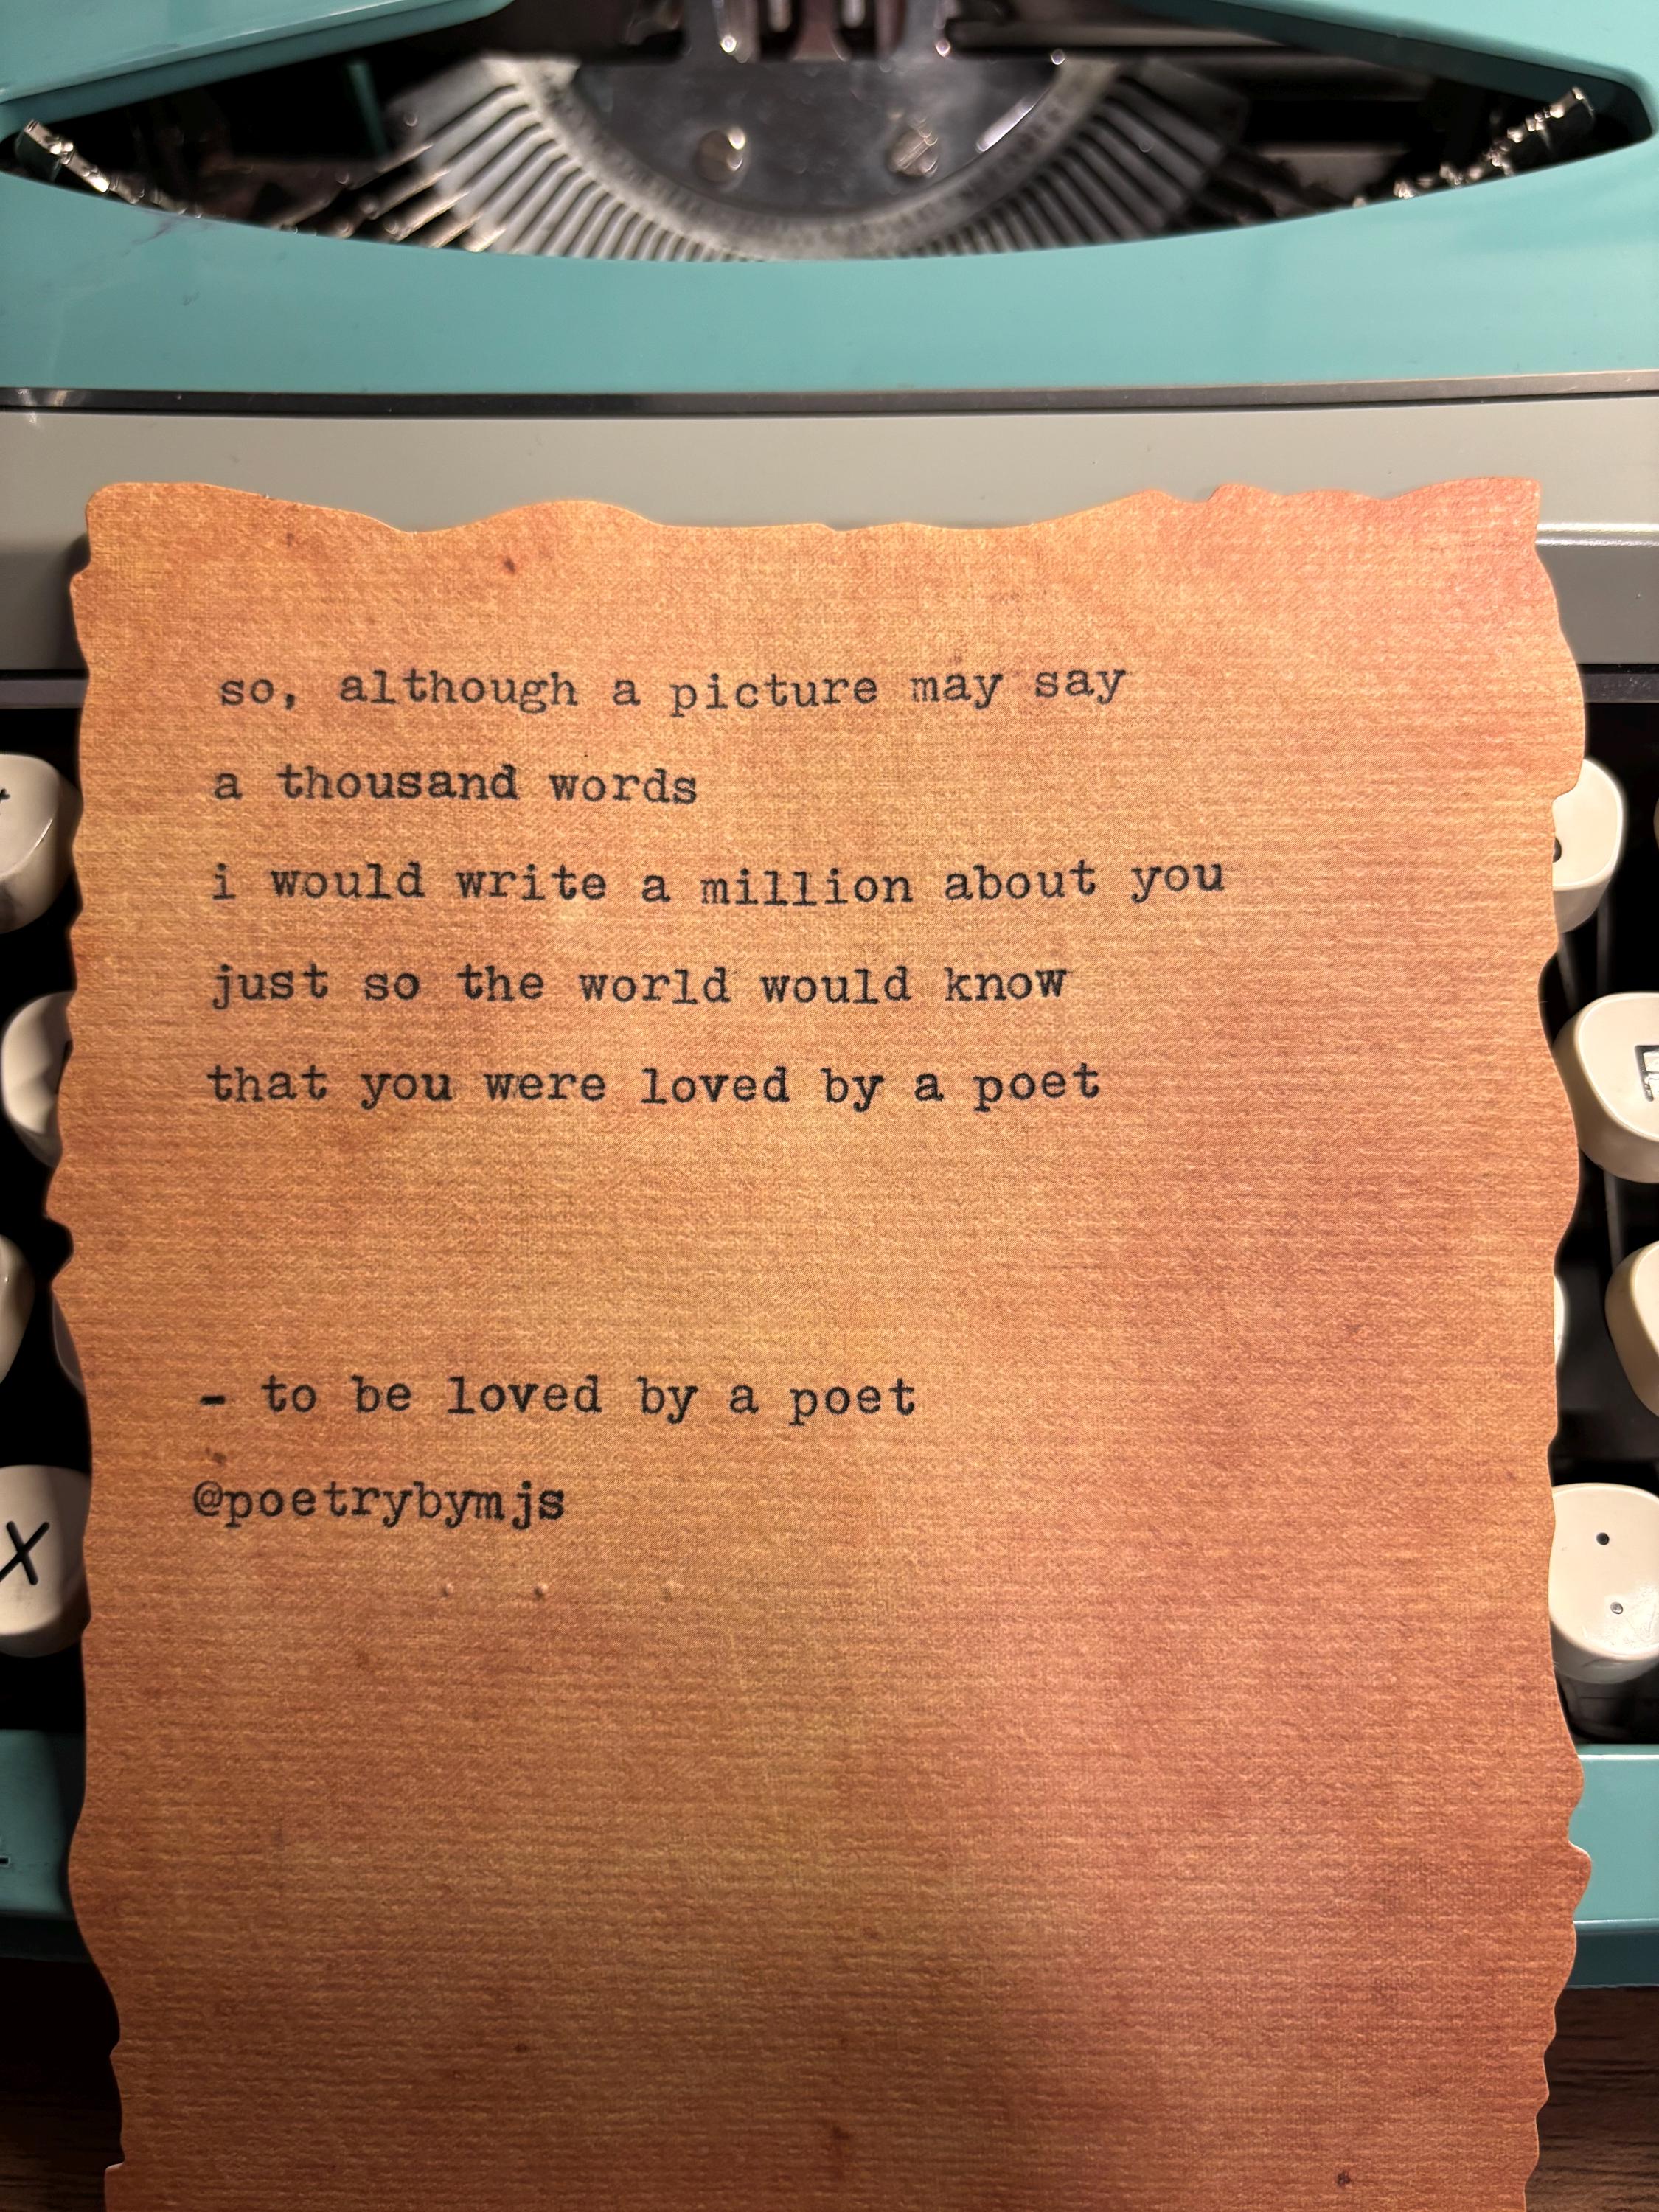 so, although a picture may say
a thousand words
i would write a million about you
just so the world would know
that you were loved by a poet
- to be loved by a poet
@poetrybymjs
X